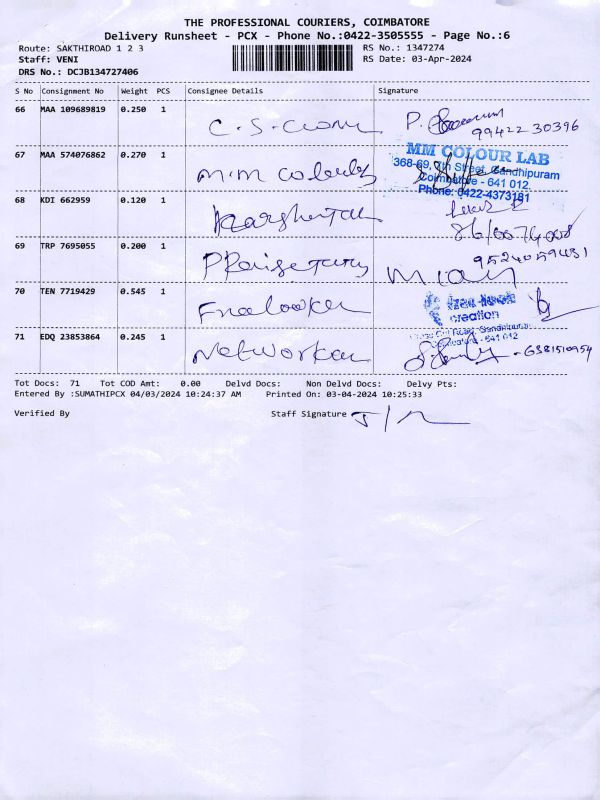 THE PROFESSIONAL COURIERS, COIMBATORE
Delivery Runsheet - PCX - Phone No.:0422-3505555 - Page No.:6
Route: SAKTHIROAD 1 2 3 RS No.: 1347274
Staff: VENI RS Date: 03-Apr-2024
DRS No.: DCJB134727406
S No Consignment No Weight PCS Consignee Details Signature
66 MAA 109689819 0.250 1 C.S. P.
99422 30396
67 MAA 574076862 0.270 1 M.M
MM COLOUR LAB
368-69, 7th Street, Gandhipuram
Coimbatore - 641 012.
Phone: 0422-4373181
68 KDI 662959 0.120 1
69 TRP 7695055 0.200 1
9524059431
70 TEN 7719429 0.545 1
creation
71 EDQ 23853864 0.245 1 Networker
- 6381510954
Tot Docs: 71 Tot COD Amt: 0.00 Delvd Docs: Non Delvd Docs: Delvy Pts:
Entered By :SUMATHIPCX 04/03/2024 10:24:37 AM Printed On: 03-04-2024 10:25:33
Verified By Staff Signature